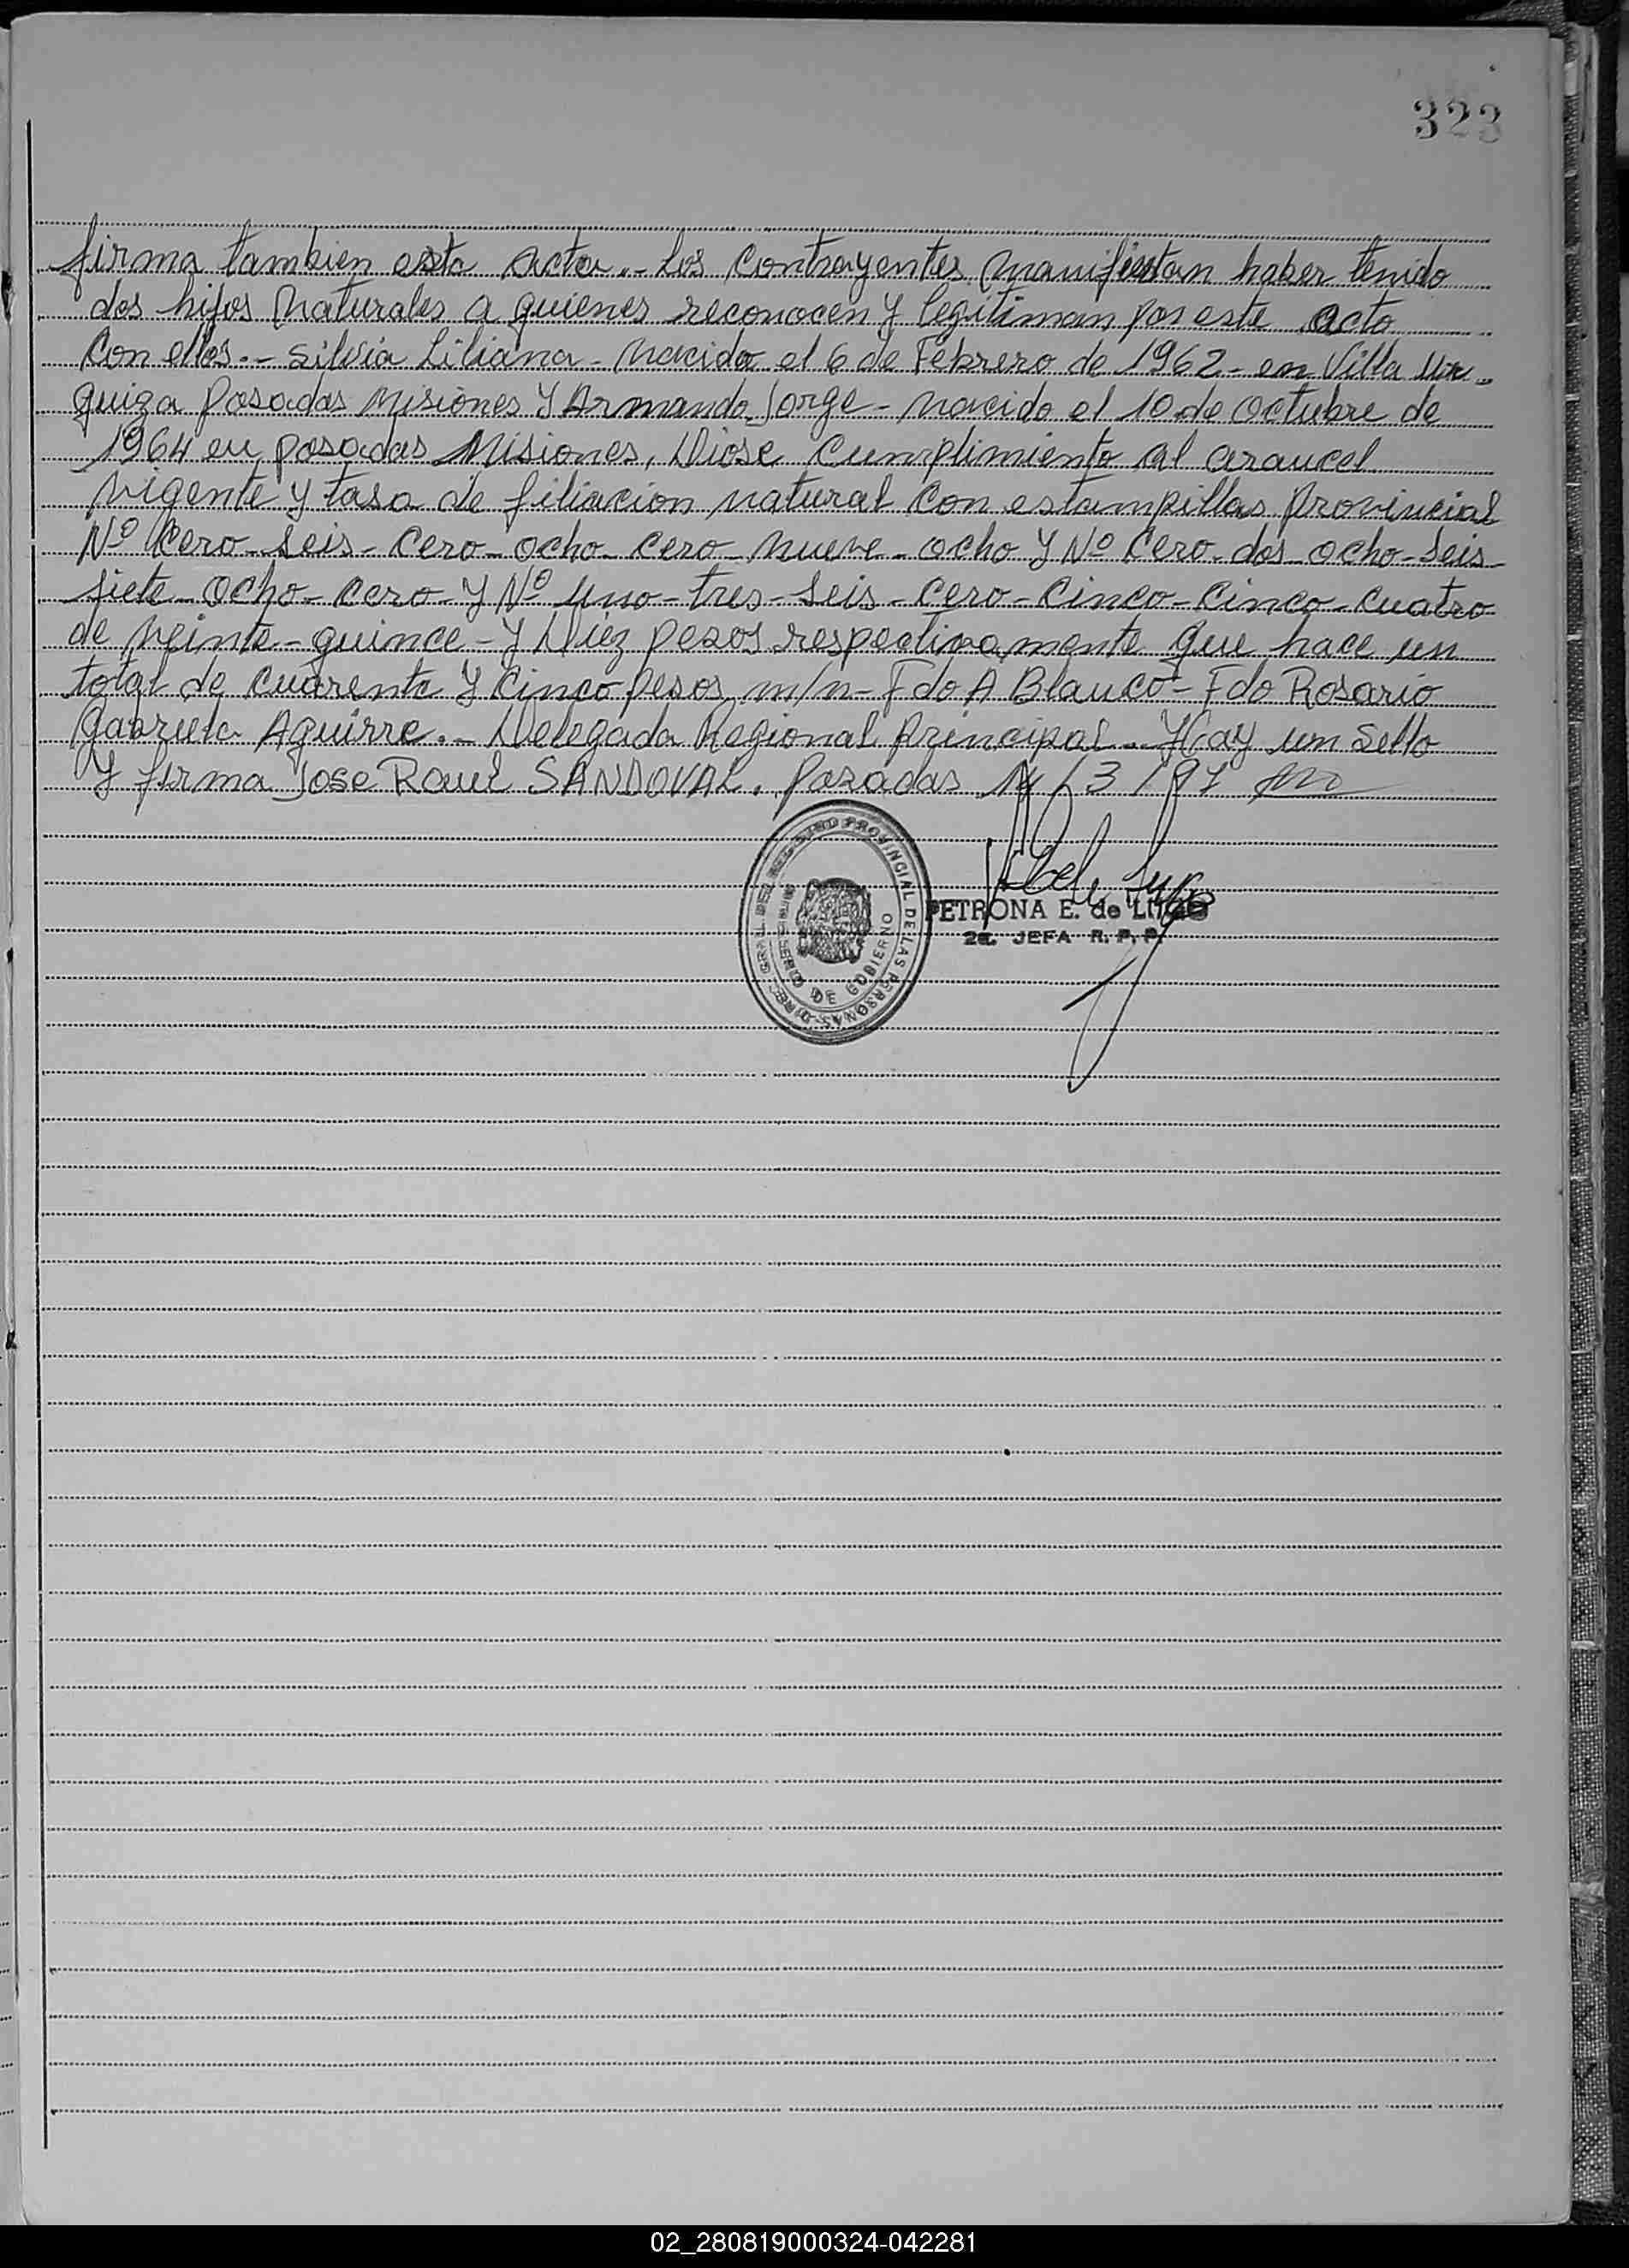 323
firma tambien esta acta.- Los Contrayentes manifiestan haber tenido
dos hijos naturales a quienes reconocen y legitiman por este acto
Con ellos.- Silvia Liliana - nacida el 6 de Febrero de 1962 - en Villa Ur-
quiza Posadas Misiones Y Armando Jorge - nacido el 10 de Octubre de
1964 en posadas Misiones, Diose Cumplimiento al arancel
vigente y tasa de filiacion natural con estampillas provincial
Nº Cero-Seis-Cero-ocho-cero-nueve-ocho Y Nº Cero-dos-ocho-Seis
siete-ocho-cero-Y Nº uno-tres-Seis-Cero-Cinco-Cinco-cuatro
de veinte-quince-y Diez pesos respectivamente que hace un
total de cuarenta Y Cinco pesos m/n - Fdo A Blanco - Fdo Rosario
Gabriela Aguirre.- Delegada Regional Principal. Hay un Sello
Y firma Jose Raul SANDOVAL. Posadas /3/97
PETRONA E. de LUGO
2a. JEFA R. P. P.
PROVINCIAL DE LAS PERSONAS
DE GOBIERNO
02_280819000324-042281